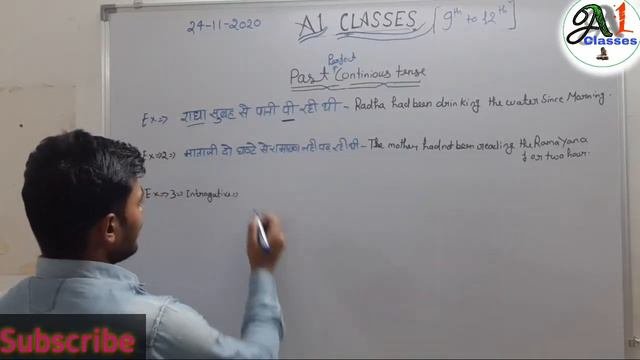 24-11-2020
A1 CLASSES [9th to 12th]
A1
Classes
Past Perfect Continious tense
Ex⇒ राधा सुबह से पानी पी रही थी - Radha had been drinking the water Since Morning.
Ex⇒2⇒ माताजी दो घण्टे से रामायण नहीं पढ़ रही थी - The mother had not been reading the Ramayana
for two hour.
Ex⇒3⇒ Introgative⇒
Subscribe